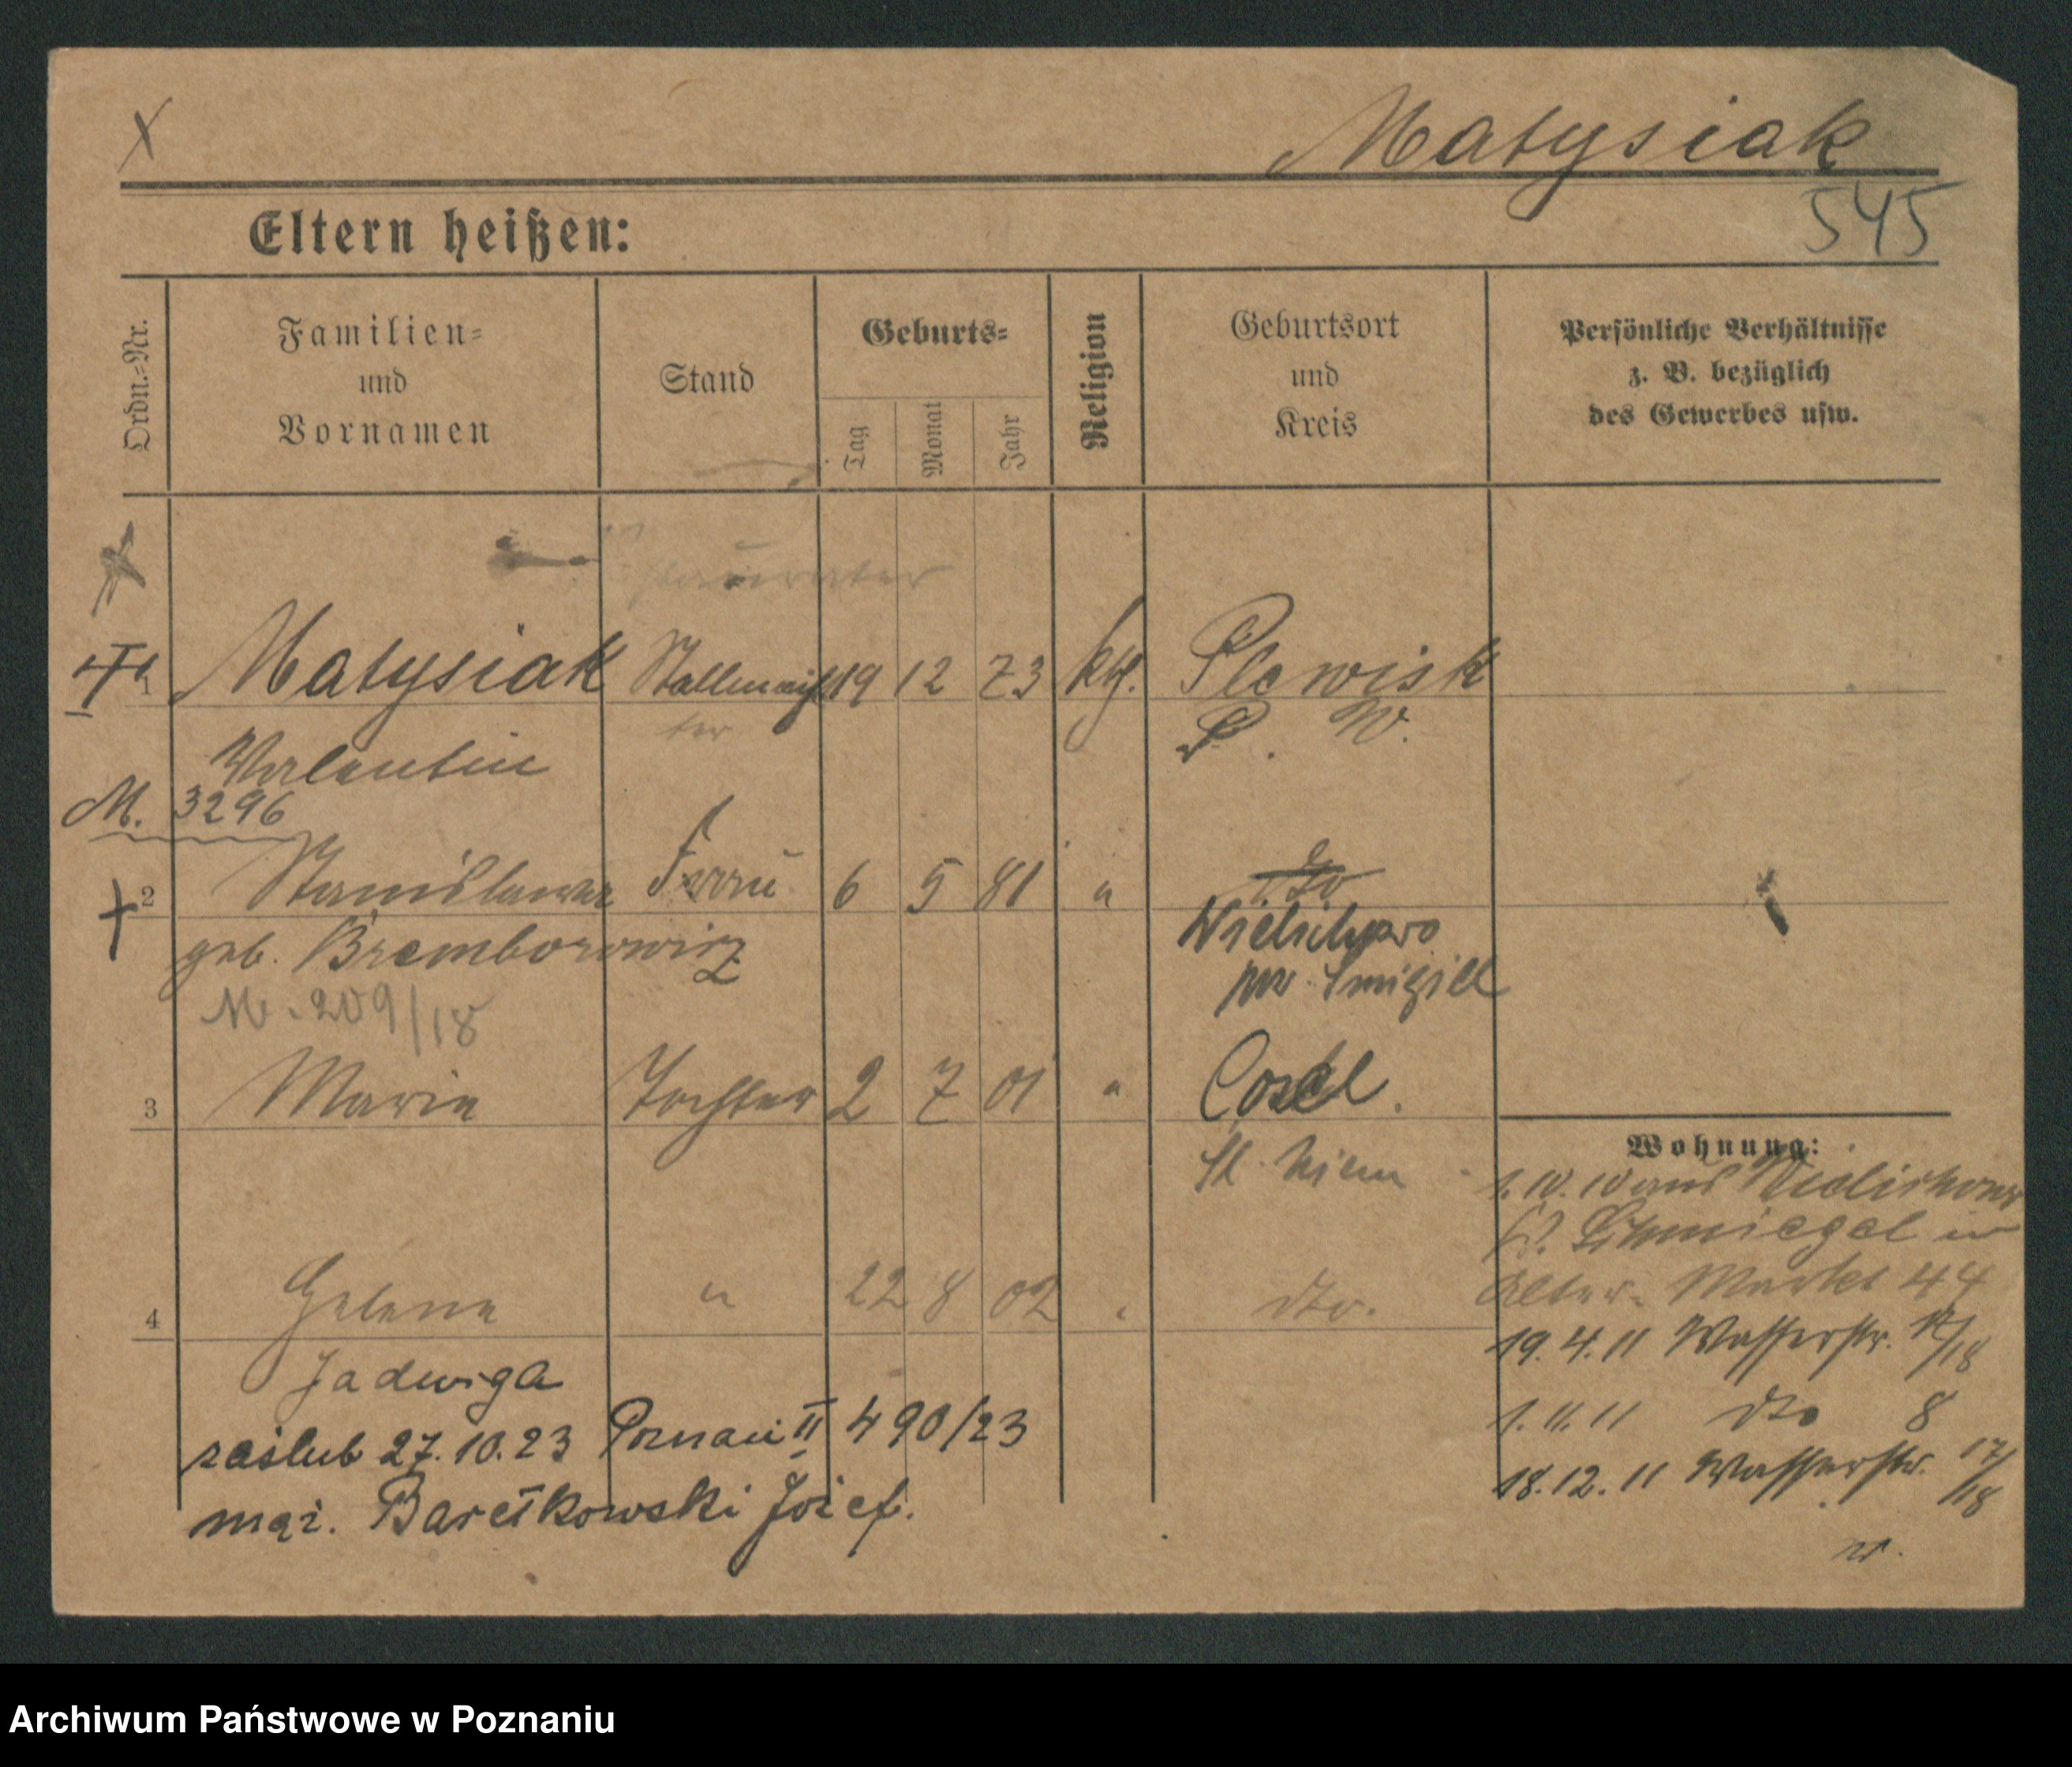 X
Matysiak
545
Eltern heißen:
Ordn.-Nr.
Familien-
und
Vornamen
Stand
Geburts-
Tag
Monat
Jahr
Religion
Geburtsort
und
Kreis
Persönliche Verhältnisse
z. B. bezüglich
des Gewerbes usw.
1 Matysiak Stallmeis 19 12 73 kth. Plewisk
ter P. W.
Valentin
M. 3296
2 Stanislawa Frau 6 5 81 " dto
geb. Bremborowicz
pow. Smigiel
M. 209/18
3 Marie Tochter 2 7 01 " Cosel.
4 Helene " 22 8 02 " dto.
Jadwiga
zaślub 27.10.23 Poznań II 490/23
mąż. Barełkowski Józef.
Wohnung:
1.10.10 aus
Schmiegel in
Alter Markt 44
19.4.11 Wasserstr. 17/18
1.11.11 dto 8
18.12.11 Wasserstr. 17/18
Archiwum Państwowe w Poznaniu